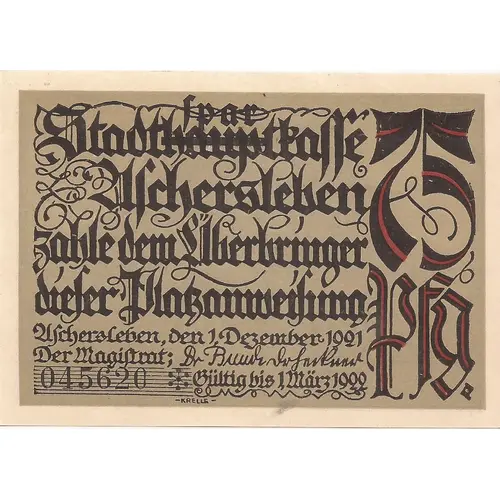 spar
Stadthauptkasse
Aschersleben
zahle dem Überbringer
dieser Platzanweisung
75
Pfg
Aschersleben, den 1. Dezember 1921
Der Magistrat;
045620 Gültig bis 1. März 1922
-KRELLE-